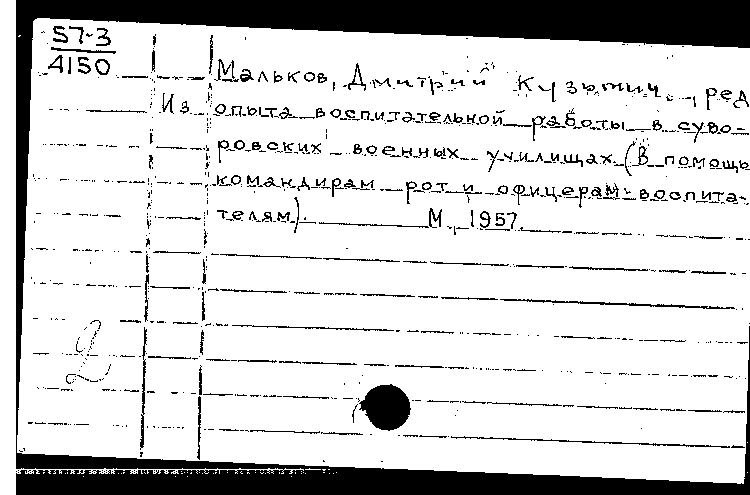 57-3
4150
Мальков, Дмитрий Кузьмич, ред
Из опыта воспитательной работы в суво-
ровских военных училищах (В помощь
командирам рот и офицерам-воспита-
телям). М., 1957.
2